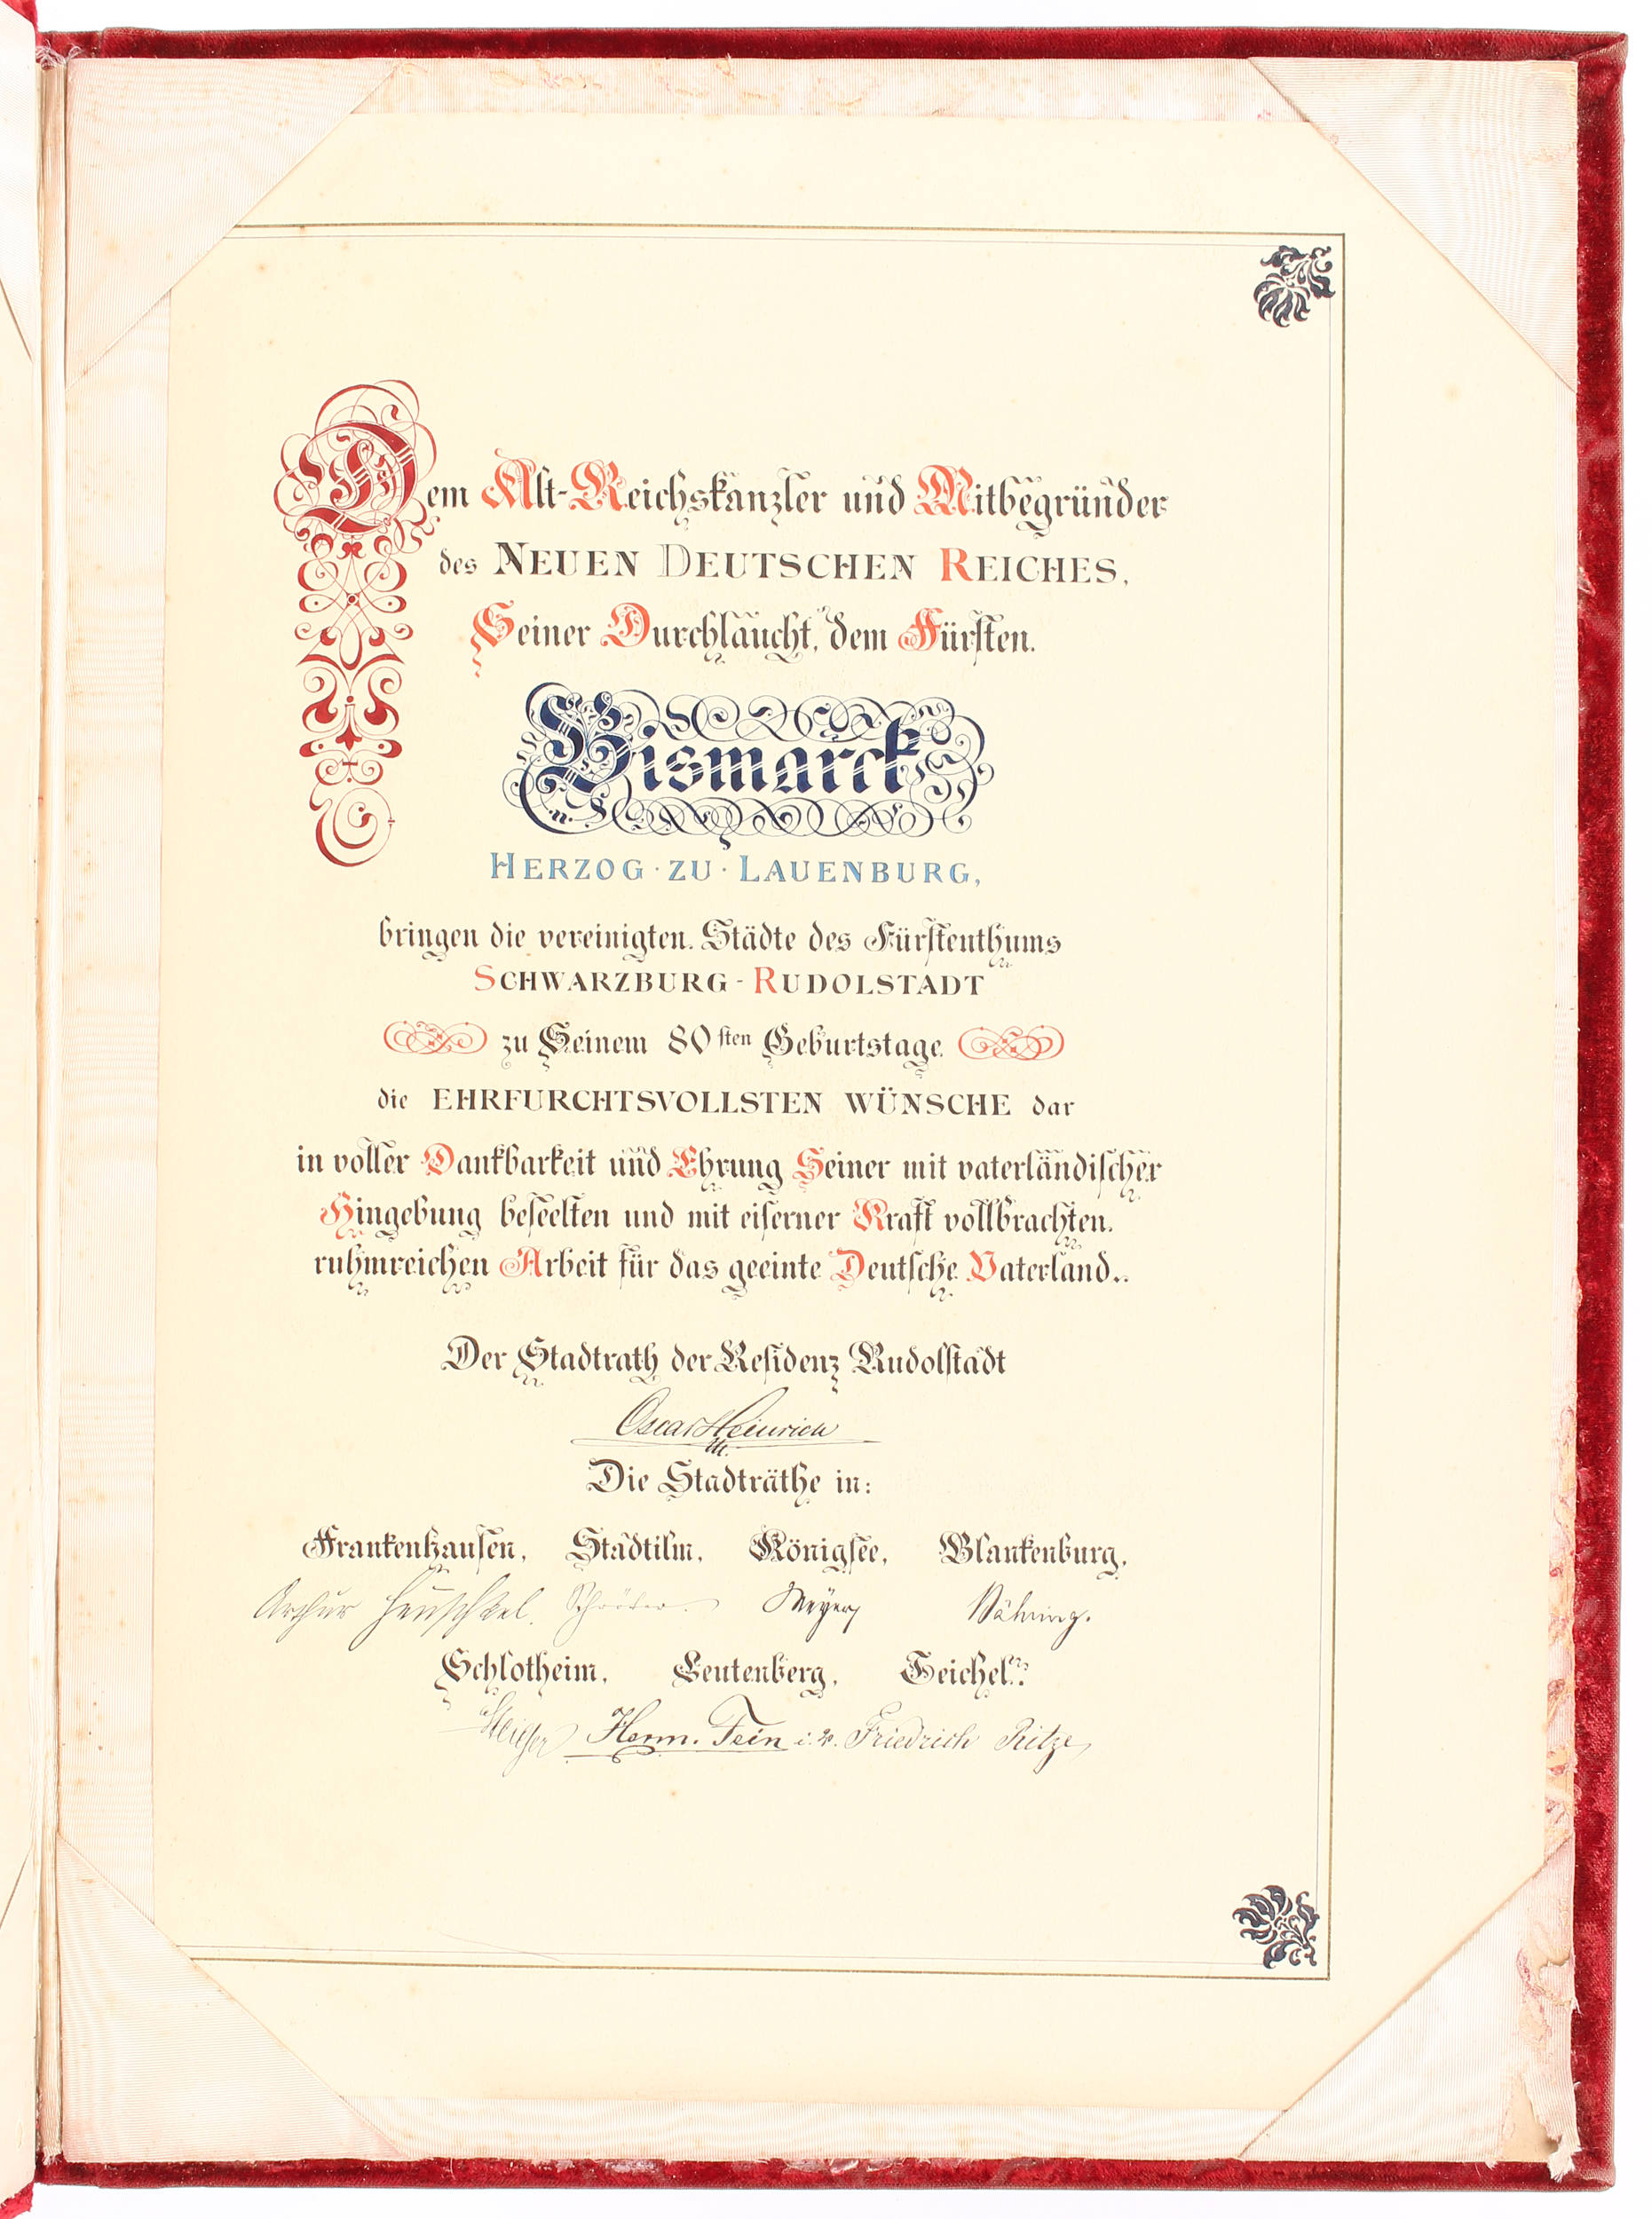 Dem Alt-Reichskanzler und Mitbegründer
des NEUEN DEUTSCHEN REICHES,
Seiner Durchlaucht, dem Fürsten
Bismarck
HERZOG · ZU · LAUENBURG,
bringen die vereinigten Städte des Fürstenthums
SCHWARZBURG - RUDOLSTADT
zu Seinem 80sten Geburtstage
die EHRFURCHTSVOLLSTEN WÜNSCHE dar
in voller Dankbarkeit und Ehrung Seiner mit vaterländischer
Hingebung beseelten und mit eiserner Kraft vollbrachten
ruhmreichen Arbeit für das geeinte Deutsche Vaterland.
Der Stadtrath der Residenz Rudolstadt
Oscar Heinrich
Die Stadträthe in:
Frankenhausen, Stadtilm, Königsee, Blankenburg,
Arthur Heuschkel. Schröder. Meyer Bähring.
Schlotheim, Leutenberg, Teichel:
Herm. Fein i. v. Friedrich Ritze